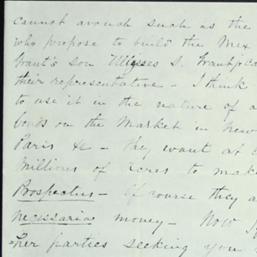 cannot avouch such as the
who propose to build the Mex
Grant's son Ulysses S. Grant Jr
their representative - I think
to use it in the nature of a
bonds on the Market in New
Paris &c - they want at
Millions of acres to mak
Prospectus - Of course they a
necessaria money - Now
other parties seeking you